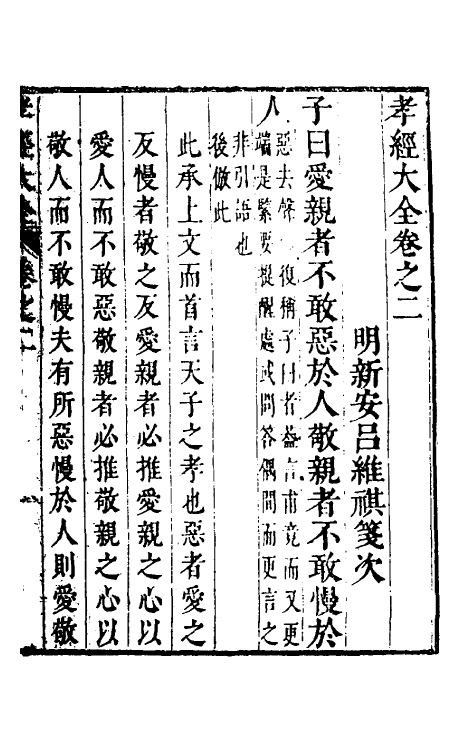 孝經大全卷之二
明新安呂維祺箋次
子曰愛親者不敢惡於人敬親者不敢慢於
人
惡去聲 復稱子曰者蓋言甫竟而又更
端是緊要提醒處或問答偶間而更言之
非引語也
後倣此
此承上文而首言天子之孝也惡者愛之
反慢者敬之反愛親者必推愛親之心以
愛人而不敢惡敬親者必推敬親之心以
敬人而不敢慢夫有所惡慢於人則愛敬
孝經大全 卷之二